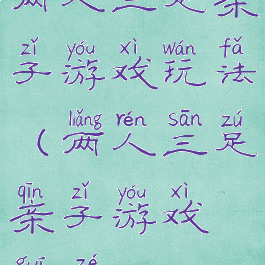 两人三足亲
zǐ yóu xì wán fǎ
子游戏玩法
liǎng rén sān zú
(两人三足
qīn zǐ yóu xì
亲子游戏
guī zé